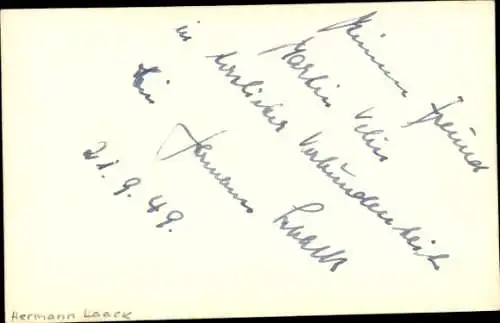 Meinem Freund
Martin Velin
in herzlicher Verbundenheit
Dein
Hermann Laack
21.9.49.
Hermann Laack